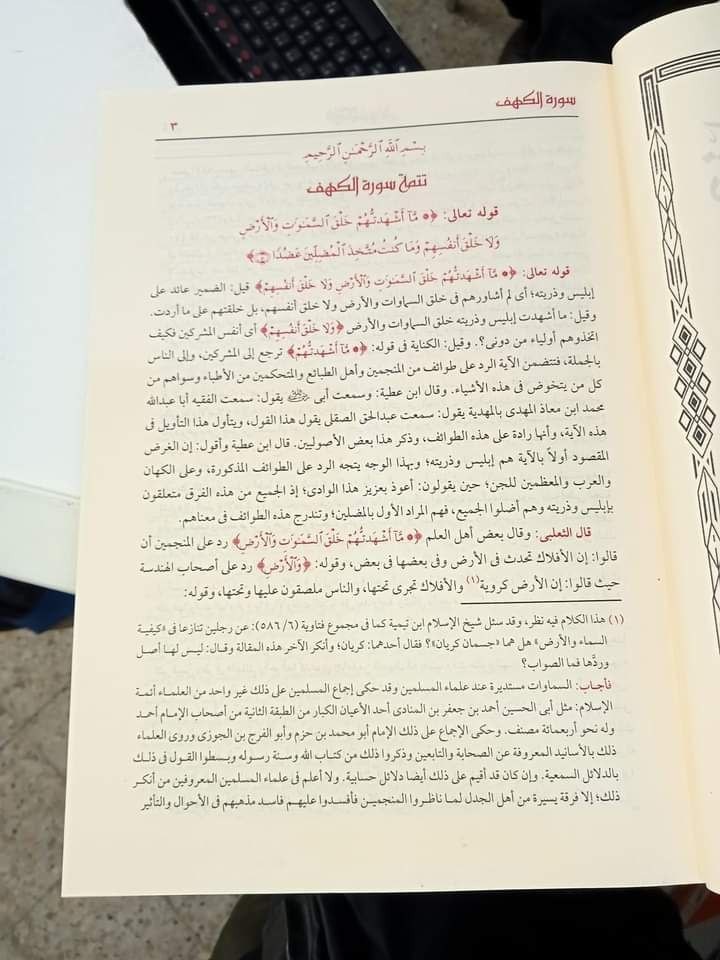 سورة الكهف
٣
بسم الله الرحمن الرحيم
تتمة سورة الكهف
قوله تعالى: ﴿۞ مَّآ أَشْهَدتُّهُمْ خَلْقَ ٱلسَّمَٰوَٰتِ وَٱلْأَرْضِ
وَلَا خَلْقَ أَنفُسِهِمْ وَمَا كُنتُ مُتَّخِذَ ٱلْمُضِلِّينَ عَضُدًا ۝٥١﴾
قوله تعالى: ﴿۞ مَّآ أَشْهَدتُّهُمْ خَلْقَ ٱلسَّمَٰوَٰتِ وَٱلْأَرْضِ وَلَا خَلْقَ أَنفُسِهِمْ﴾ قيل: الضمير عائد على
إبليس وذريته؛ أى لم أشاورهم فى خلق السماوات والأرض ولا خلق أنفسهم، بل خلقتهم على ما أردت.
وقيل: ما أشهدت إبليس وذريته خلق السماوات والأرض ﴿وَلَا خَلْقَ أَنفُسِهِمْ﴾ أى أنفس المشركين فكيف
اتخذوهم أولياء من دونى؟. وقيل: الكناية فى قوله: ﴿۞ مَّآ أَشْهَدتُّهُمْ﴾ ترجع إلى المشركين، وإلى الناس
بالجملة، فتتضمن الآية الرد على طوائف من المنجمين وأهل الطبائع والمتحكمين من الأطباء وسواهم من
كل من يتخوض فى هذه الأشياء. وقال ابن عطية: وسمعت أبى رضي الله عنه يقول: سمعت الفقيه أبا عبدالله
محمد ابن معاذ المهدى بالمهدية يقول: سمعت عبدالحق الصقلى يقول هذا القول، ويتأول هذا التأويل فى
هذه الآية، وأنها رادة على هذه الطوائف، وذكر هذا بعض الأصوليين. قال ابن عطية وأقول: إن الغرض
المقصود أولاً بالآية هم إبليس وذريته؛ وبهذا الوجه يتجه الرد على الطوائف المذكورة، وعلى الكهان
والعرب والمعظمين للجن؛ حين يقولون: أعوذ بعزيز هذا الوادى؛ إذ الجميع من هذه الفرق متعلقون
بإبليس وذريته وهم أضلوا الجميع، فهم المراد الأول بالمضلين؛ وتندرج هذه الطوائف فى معناهم.
قال الثعلبى: وقال بعض أهل العلم ﴿۞ مَّآ أَشْهَدتُّهُمْ خَلْقَ ٱلسَّمَٰوَٰتِ وَٱلْأَرْضِ﴾ رد على المنجمين أن
قالوا: إن الأفلاك تحدث فى الأرض وفى بعضها فى بعض، وقوله: ﴿وَٱلْأَرْضِ﴾ رد على أصحاب الهندسة
حيث قالوا: إن الأرض كروية(١) والأفلاك تجرى تحتها، والناس ملصقون عليها وتحتها، وقوله:
(١) هذا الكلام فيه نظر، وقد سئل شيخ الإسلام ابن تيمية كما فى مجموع فتاوية (٥٨٦/٦): عن رجلين تنازعا فى «كيفية
السماء والأرض» هل هما «جسمان كريان»؟ فقال أحدهما: كريان؛ وأنكر الآخر هذه المقالة وقال: ليس لها أصل
وردَّها فما الصواب؟
فأجاب: السماوات مستديرة عند علماء المسلمين وقد حكى إجماع المسلمين على ذلك غير واحد من العلماء أئمة
الإسلام: مثل أبى الحسين أحمد بن جعفر بن المنادى أحد الأعيان الكبار من الطبقة الثانية من أصحاب الإمام أحمد
وله نحو أربعمائة مصنف. وحكى الإجماع على ذلك الإمام أبو محمد بن حزم وأبو الفرج بن الجوزى وروى العلماء
ذلك بالأسانيد المعروفة عن الصحابة والتابعين وذكروا ذلك من كتاب الله وسنة رسوله وبسطوا القول فى ذلك
بالدلائل السمعية. وإن كان قد أقيم على ذلك أيضا دلائل حسابية. ولا أعلم فى علماء المسلمين المعروفين من أنكر
ذلك؛ إلا فرقة يسيرة من أهل الجدل لما ناظروا المنجمين فأفسدوا عليهم فاسد مذهبهم فى الأحوال والتأثير